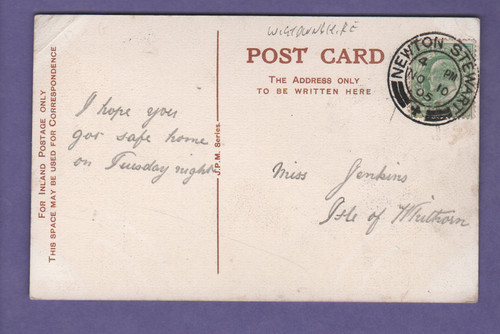 WIGTOWNSHIRE
POST CARD
THE ADDRESS ONLY
TO BE WRITTEN HERE
NEWTON STEWART
4 PM
NO 10
05
FOR INLAND POSTAGE ONLY
THIS SPACE MAY BE USED FOR CORRESPONDENCE
I hope you
got safe home
on Tuesday night
J.P.M. Series.
Miss Jenkins
Isle of Whithorn